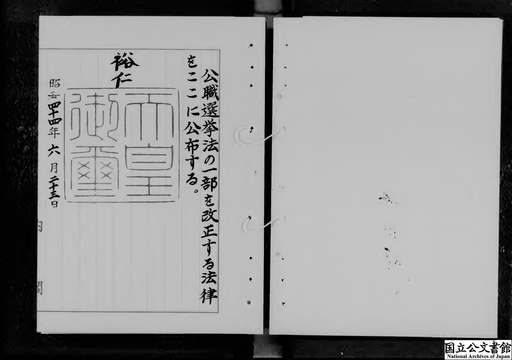 公職選挙法の一部を改正する法律
をここに公布する。
裕仁
天皇
御璽
昭和四十四年六月二十三日
内閣
国立公文書館
National Archives of Japan